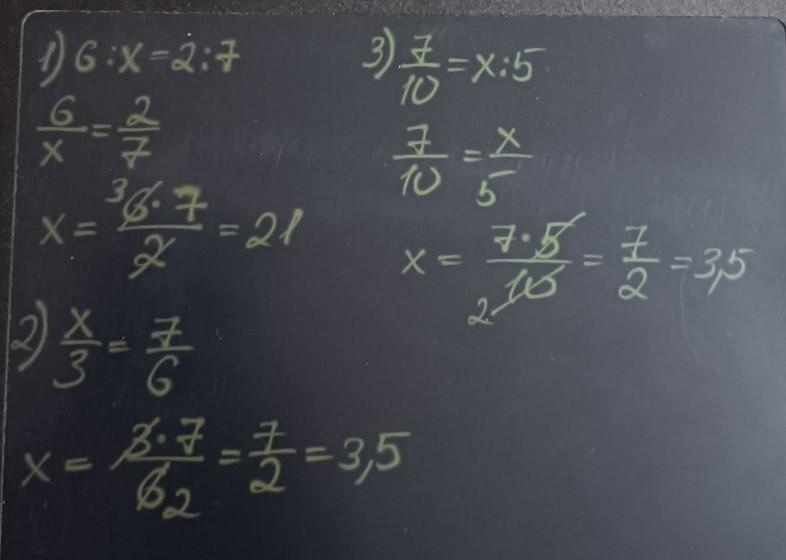 1) 6 : x = 2 : 7
6/x = 2/7
x = 6 · 7/2 = 21
3
2) x/3 = 7/6
x = 3 · 7/6 = 7/2 = 3,5
2
3) 7/10 = x : 5
7/10 = x/5
x = 7 · 5/10 = 7/2 = 3,5
2